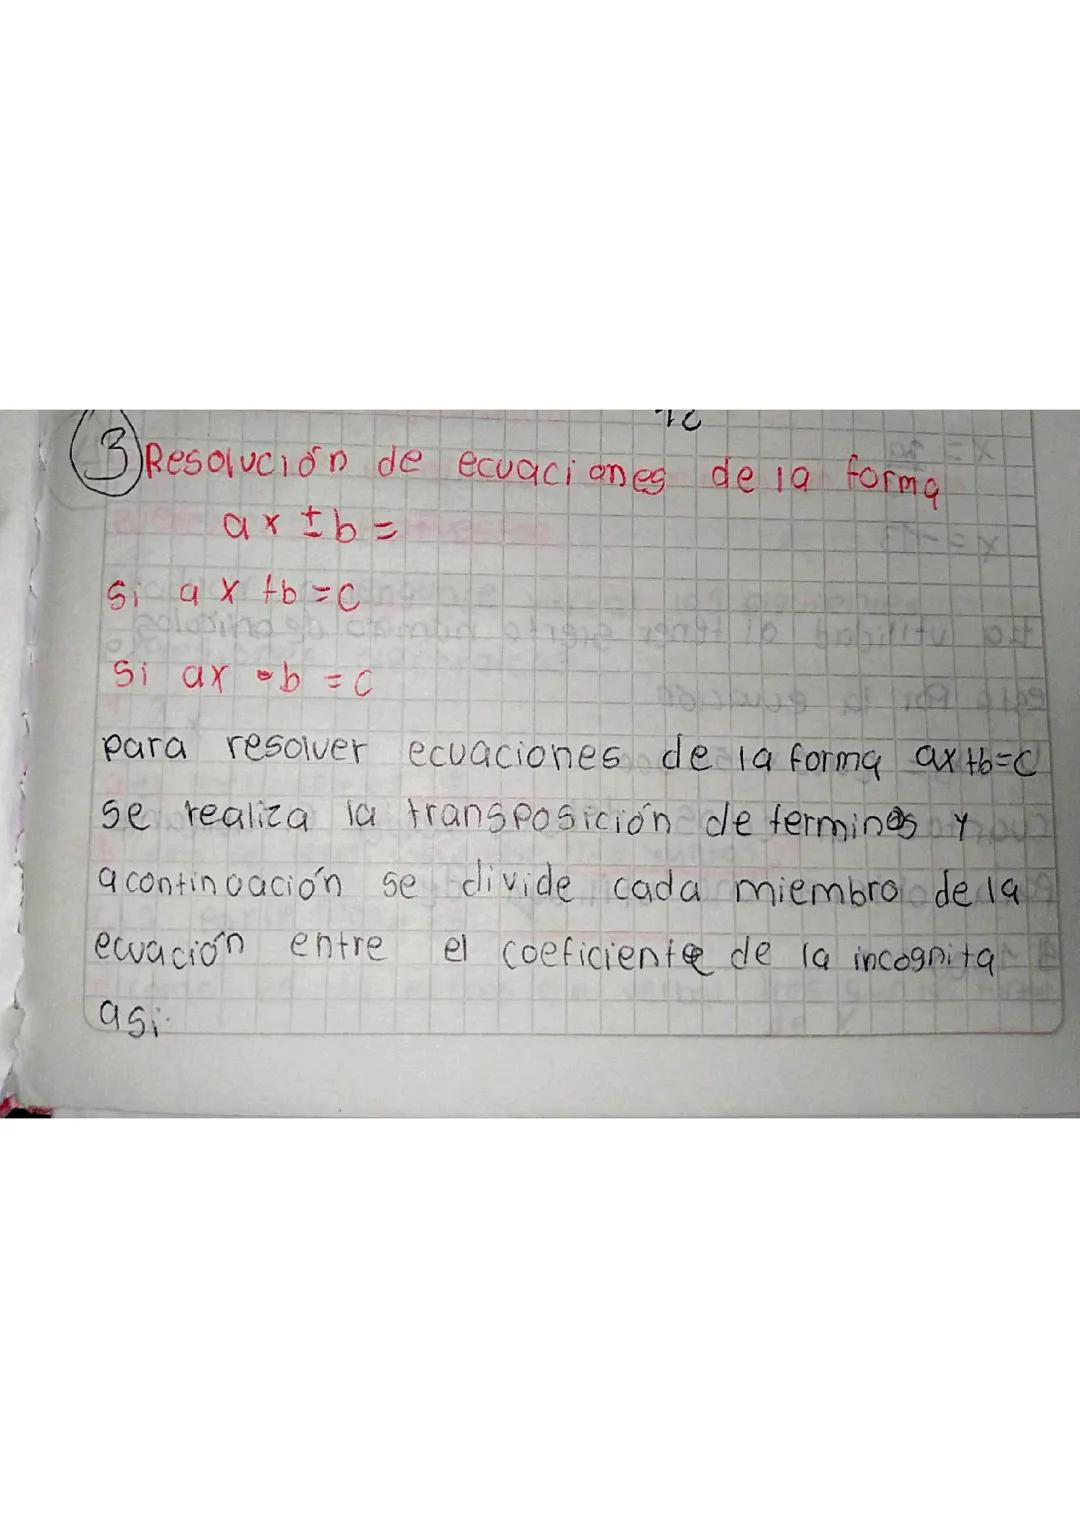 3) Resolución de ecuaciones de la forma
ax ± b =
si ax + b = c
si ax - b = c
para resolver ecuaciones de la forma ax+b=c
se realiza la transposición de terminos y
acontinuación se divide cada miembro de la
ecuación entre el coeficiente de la incognita
asi: